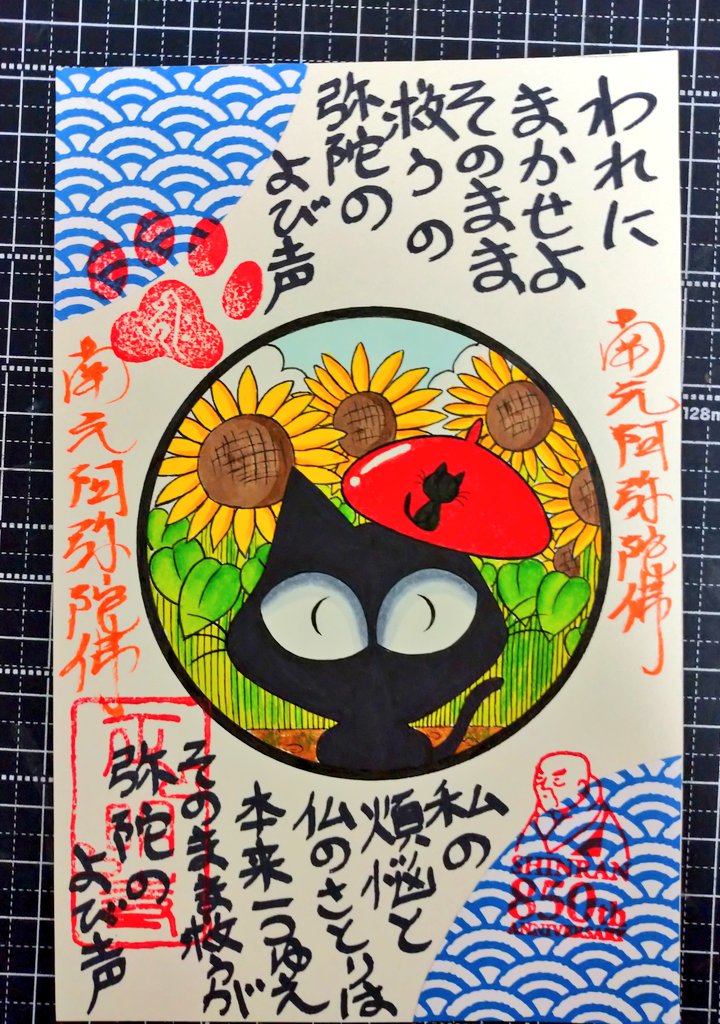 われに
まかせよ
そのまま
救うの
弥陀の
よび声
南无阿弥陀佛
南无阿弥陀佛
私の
煩悩と
仏のさとりは
本来一つゆえ
そのまま救うが
弥陀の
よび声
SHINRAN
850th
ANNIVERSARY
128m